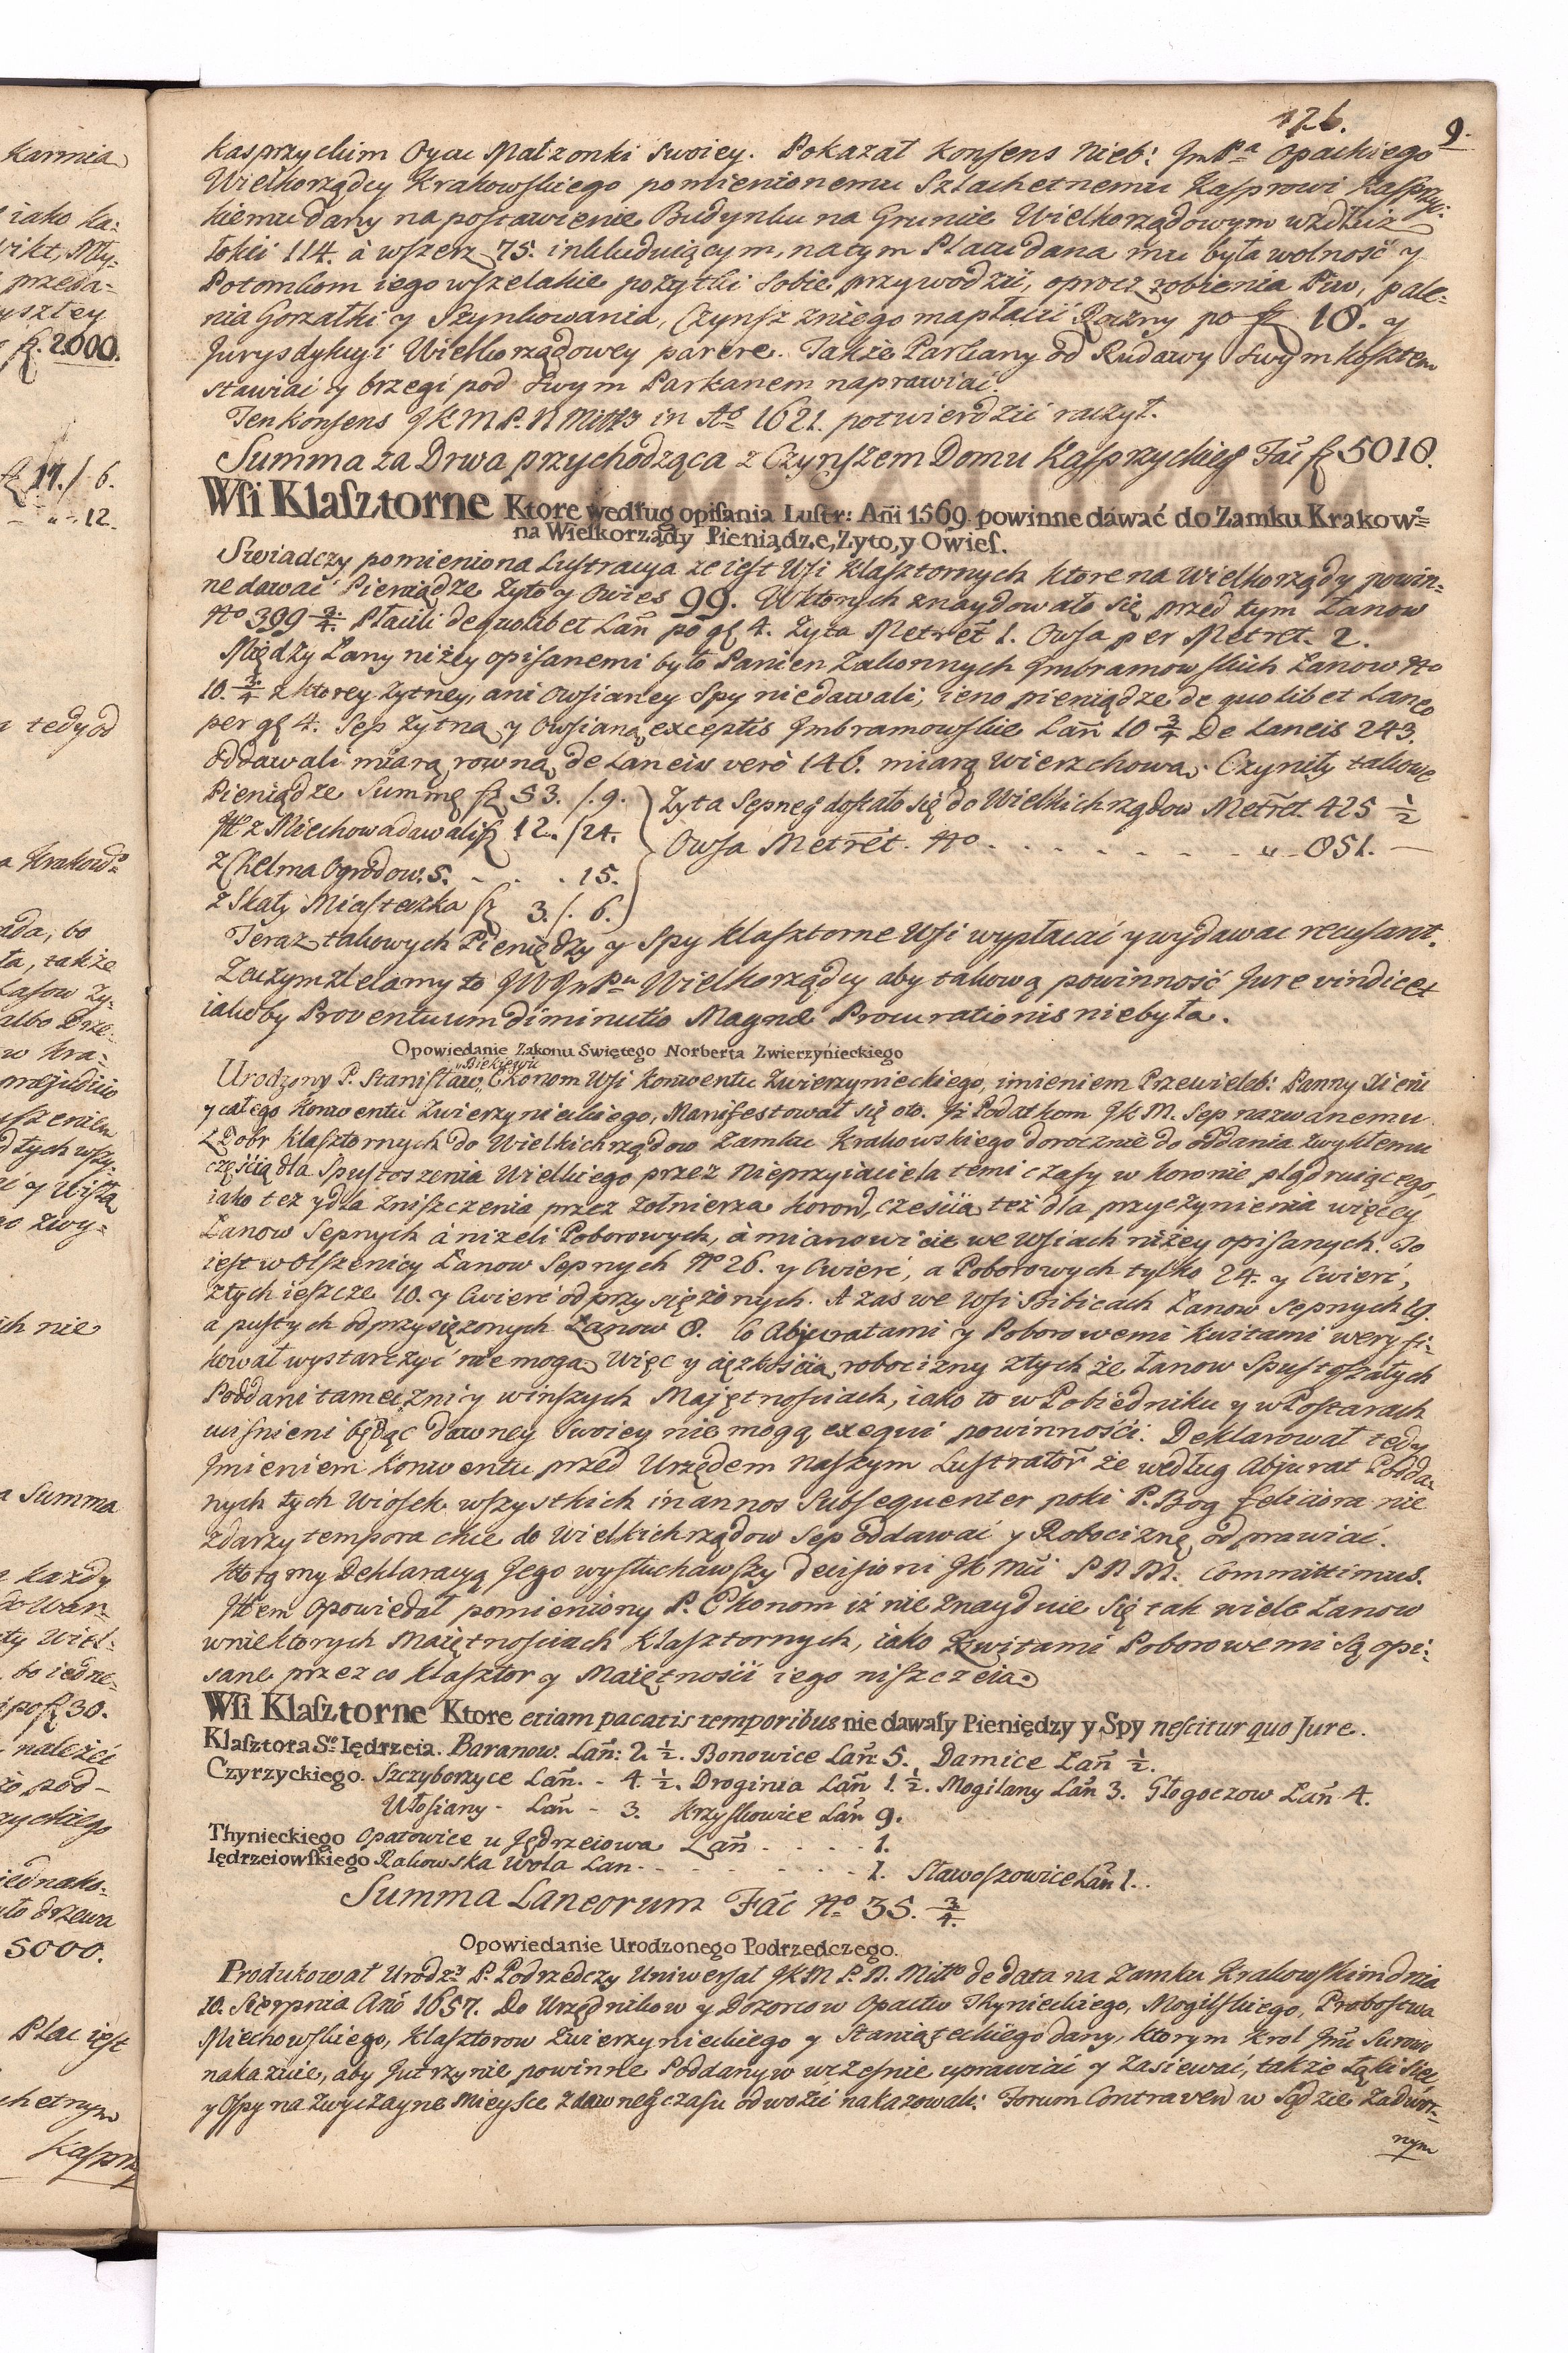 126.
9.
Kasprzyckim Oycu Małzonki swoiey. Pokazał Konsens Nieb: JmPa Opackiego
Wielkorządcy Krakowskiego pomienionemu Szlachetnemu Kasprowi Kasprzyc:
kiemu dany na postawienie Budynku na Gruncie Wielkorządowym wzdłuż
łokci 114. à wszerz 75. inkluduiącym, na tym Placu dana mu była wolność y
Potomkom iego wszelakie pożytki sobie przywodzić, oprocz robienia Piw, pale:
nia Gorzałki y Szynkowania, Czynsz zniego ma płacić Roczny po fl 18. y
Jurysdykcyi Wielkorządowey parere. Także Parkany od Rudawy swym kosztem
stawiać y brzegi pod swym Parkanem naprawiać.
Ten Konsens JKM P. N. Miłłs in Ao 1621. potwierdzić raczył.
Summa za Drwa przychodząca z Czynszem Domu Kasprzyckieg Fac fl 5018.
Wsi Klasztorne Ktore według opisania Lustr: Ani 1569. powinne dáwać do Zamku Krakow:
na Wielkorządy Pieniądze, Zyto, y Owies.
Swiadczy pomieniona Lustracya że iest Wsi Klasztornych ktore na Wielkorządy powin:
ne dawać Pieniądze Zyto y Owies 99. Wktorych znaydowało się przed tym Łanow
No 399 2/4. Płacili de quolibet Lan po gs 4. Zyta Metret 1. Owsa per Metret. 2.
Między Łany niżey opisanemi było Panien Zakonnych Jmbramowskich Łanow No
10. 3/4 z ktorey żytney, ani Owsianey Spy niedawali, ieno pieniądze de quolibet Laneo
per gs 4. Sep żytną y Owsianą, exceptis Jmbramowskie Lan 10 3/4 De Laneis 243.
oddawali miarą rowną, de Laneis verò 146. miarą wierzchową. Czyniły takowe
Pieniądze Summę fl 53. /. 9.
Zyta Sepneg dostało się do Wielkichrządow Metret. 425 1/2
Itt z Miechowa dawali fl 12. / 24.
Owsa Metret. No . . . . . . . " 851. —
z Chelma Ogrodow. 5. - . . 15.
z Skały Miasteczka fl 3. /. 6.
Teraz takowych Pieniędzy y Spy Klasztorne Wsi wypłacać y wydawać recusant.
Zaczym zlecamy to JWJnPu Wielkorządcy aby takową powinność Jure vindicet
iakoby Proventuum diminutio Magnæ Procurationis niebyła.
Opowiedanie Zakonu Swiętego Norberta Zwierzynieckiego
Urodzony P. Stanisław Ekonom Wsi Konwentu Zwierzynieckiego, imieniem Przewieleb: Panny Xieni
y całego Konwentu Zwierzynieckiego, Manifestował się oto. Jż Podatkom JKM. Sep nazwanemu
z Dobr Klasztornych do Wielkichrządow Zamku Krakowskiego dorocznie do oddania zwykłemu
częścią dla Spustoszenia Wielkiego przez Nieprzyiaciela temi czasy w Koronie plądruiącego,
iako też y dla zniszczenia przez Zołnierza Koron, częścią też dla przyczynienia więcey
Łanow Sepnych á niżeli Poborowych, à mianowicie we Wsiach niżey opisanych. To
iest w Olszenicy Łanow Sepnych No 26. y Cwierć, a Poborowych tylko 24. y Cwierć,
z tych ieszcze 10. y Cwierć odprzysiężonych. A zas we Wsi Bibicach Łanow Sepnych 19.
a pustych odprzysięzonych Łanow 8. Co Abjuratami y Poborowemi Kwitami weryfi:
kował wystarczyć niemogą. Więc y cięzkością robocizny z tych że Łanow Spustoszałych
Poddani tameczni y winszych Majętnosciach, iako to w Pobiedniku y w Postarach
ucisnieni będąc dawney Swoiey nie mogą exequi powinności. Deklarował tedy
Jmieniem Konwentu przed Urzędem Naszym Lustrator że według Abjurat Podda:
nych tych Wiosek wszystkich in annos Subsequenter poki P. Bog feliciora nie
zdarzy tempora chce do Wielkichrządow Sep oddawać y Robociznę odprawiać.
Ktorą my Deklaracyą Jego wysłuchawszy decisioni JKMci P N M. Committimus.
Jttem Opowiedał pomieniony P. Ekonom iż nie znayduie się tak wiele Łanow
wniektorych Maiętnosciach Klasztornych, iako Kwitami Poborowemi Są opi:
sane przez co Klasztor y Maiętności iego niszczeią.
Wsi Klasztorne Ktore etiam pacatis temporibus nie dawały Pieniędzy y Spy nescitur quo Jure.
Klasztora So Iędrzeia. Baranow. Lan: 2 1/2. Bonowice Lan 5. Damice Lan 1/2.
Czyrzyckiego. Szczyborzyce Lan. - 4 1/2. Droginia Lan 1. 1/2. Mogilany Lan 3. Głogoczow Lan 4.
Włosiany - Lan - 3. Krzyskowice Lan 9.
Thynieckiego Opatowice u Jędrzeiowa Lan - - - - 1.
Iędrzeiowskiego Rakowska Wola Lan - - - - - 1. Sławoszowice Lan 1..
Summa Laneorum Fac No 35. 3/4.
Opowiedanie Urodzonego Podrzedczego.
Produkował Urodzy P. Podrzędczy Uniwersał JKM P. N. Miłło de data na Zamku Krakowskim dnia
10. Sierpnia Ano 1657. Do Urzędnikow y Dozorcow Opactw Thynieckiego, Mogilskiego, Probostwa
Miechowskiego, Klasztorow Zwierzynieckiego y Staniąteckiego dany, ktorym Krol Jmć Surowo
nakazuie, aby Jutrzynie powinne Poddanym wcześnie uprawiać y zasiewać, także Łąki siec
y Ospy na zwyczayne Mieysce z dawneg czasu odwozić nakazowali: Forum Contraven w Sądzie Zadwor:
nym